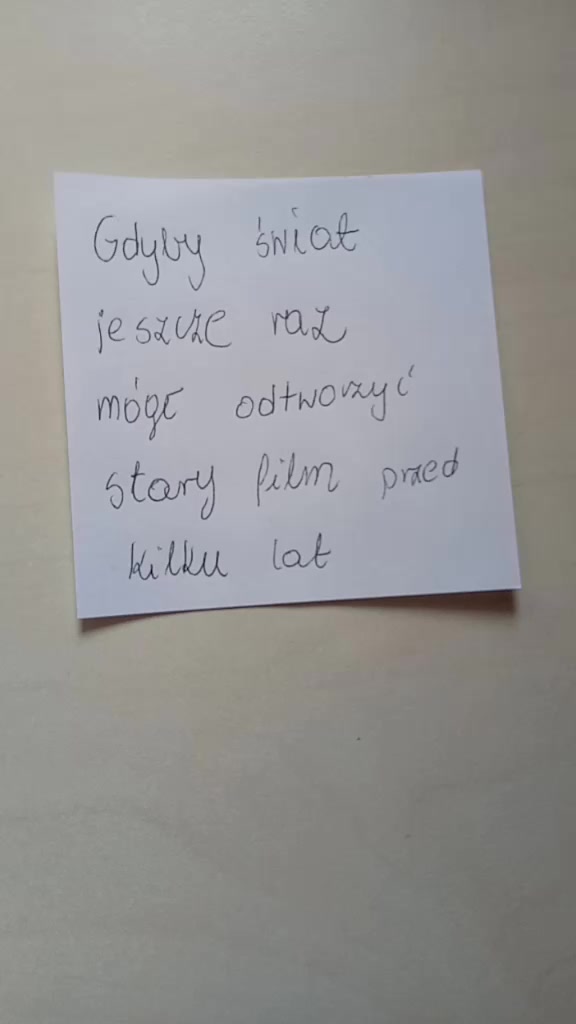 Gdyby świat
jeszcze raz
mógł odtworzyć
stary film przed
kilku lat